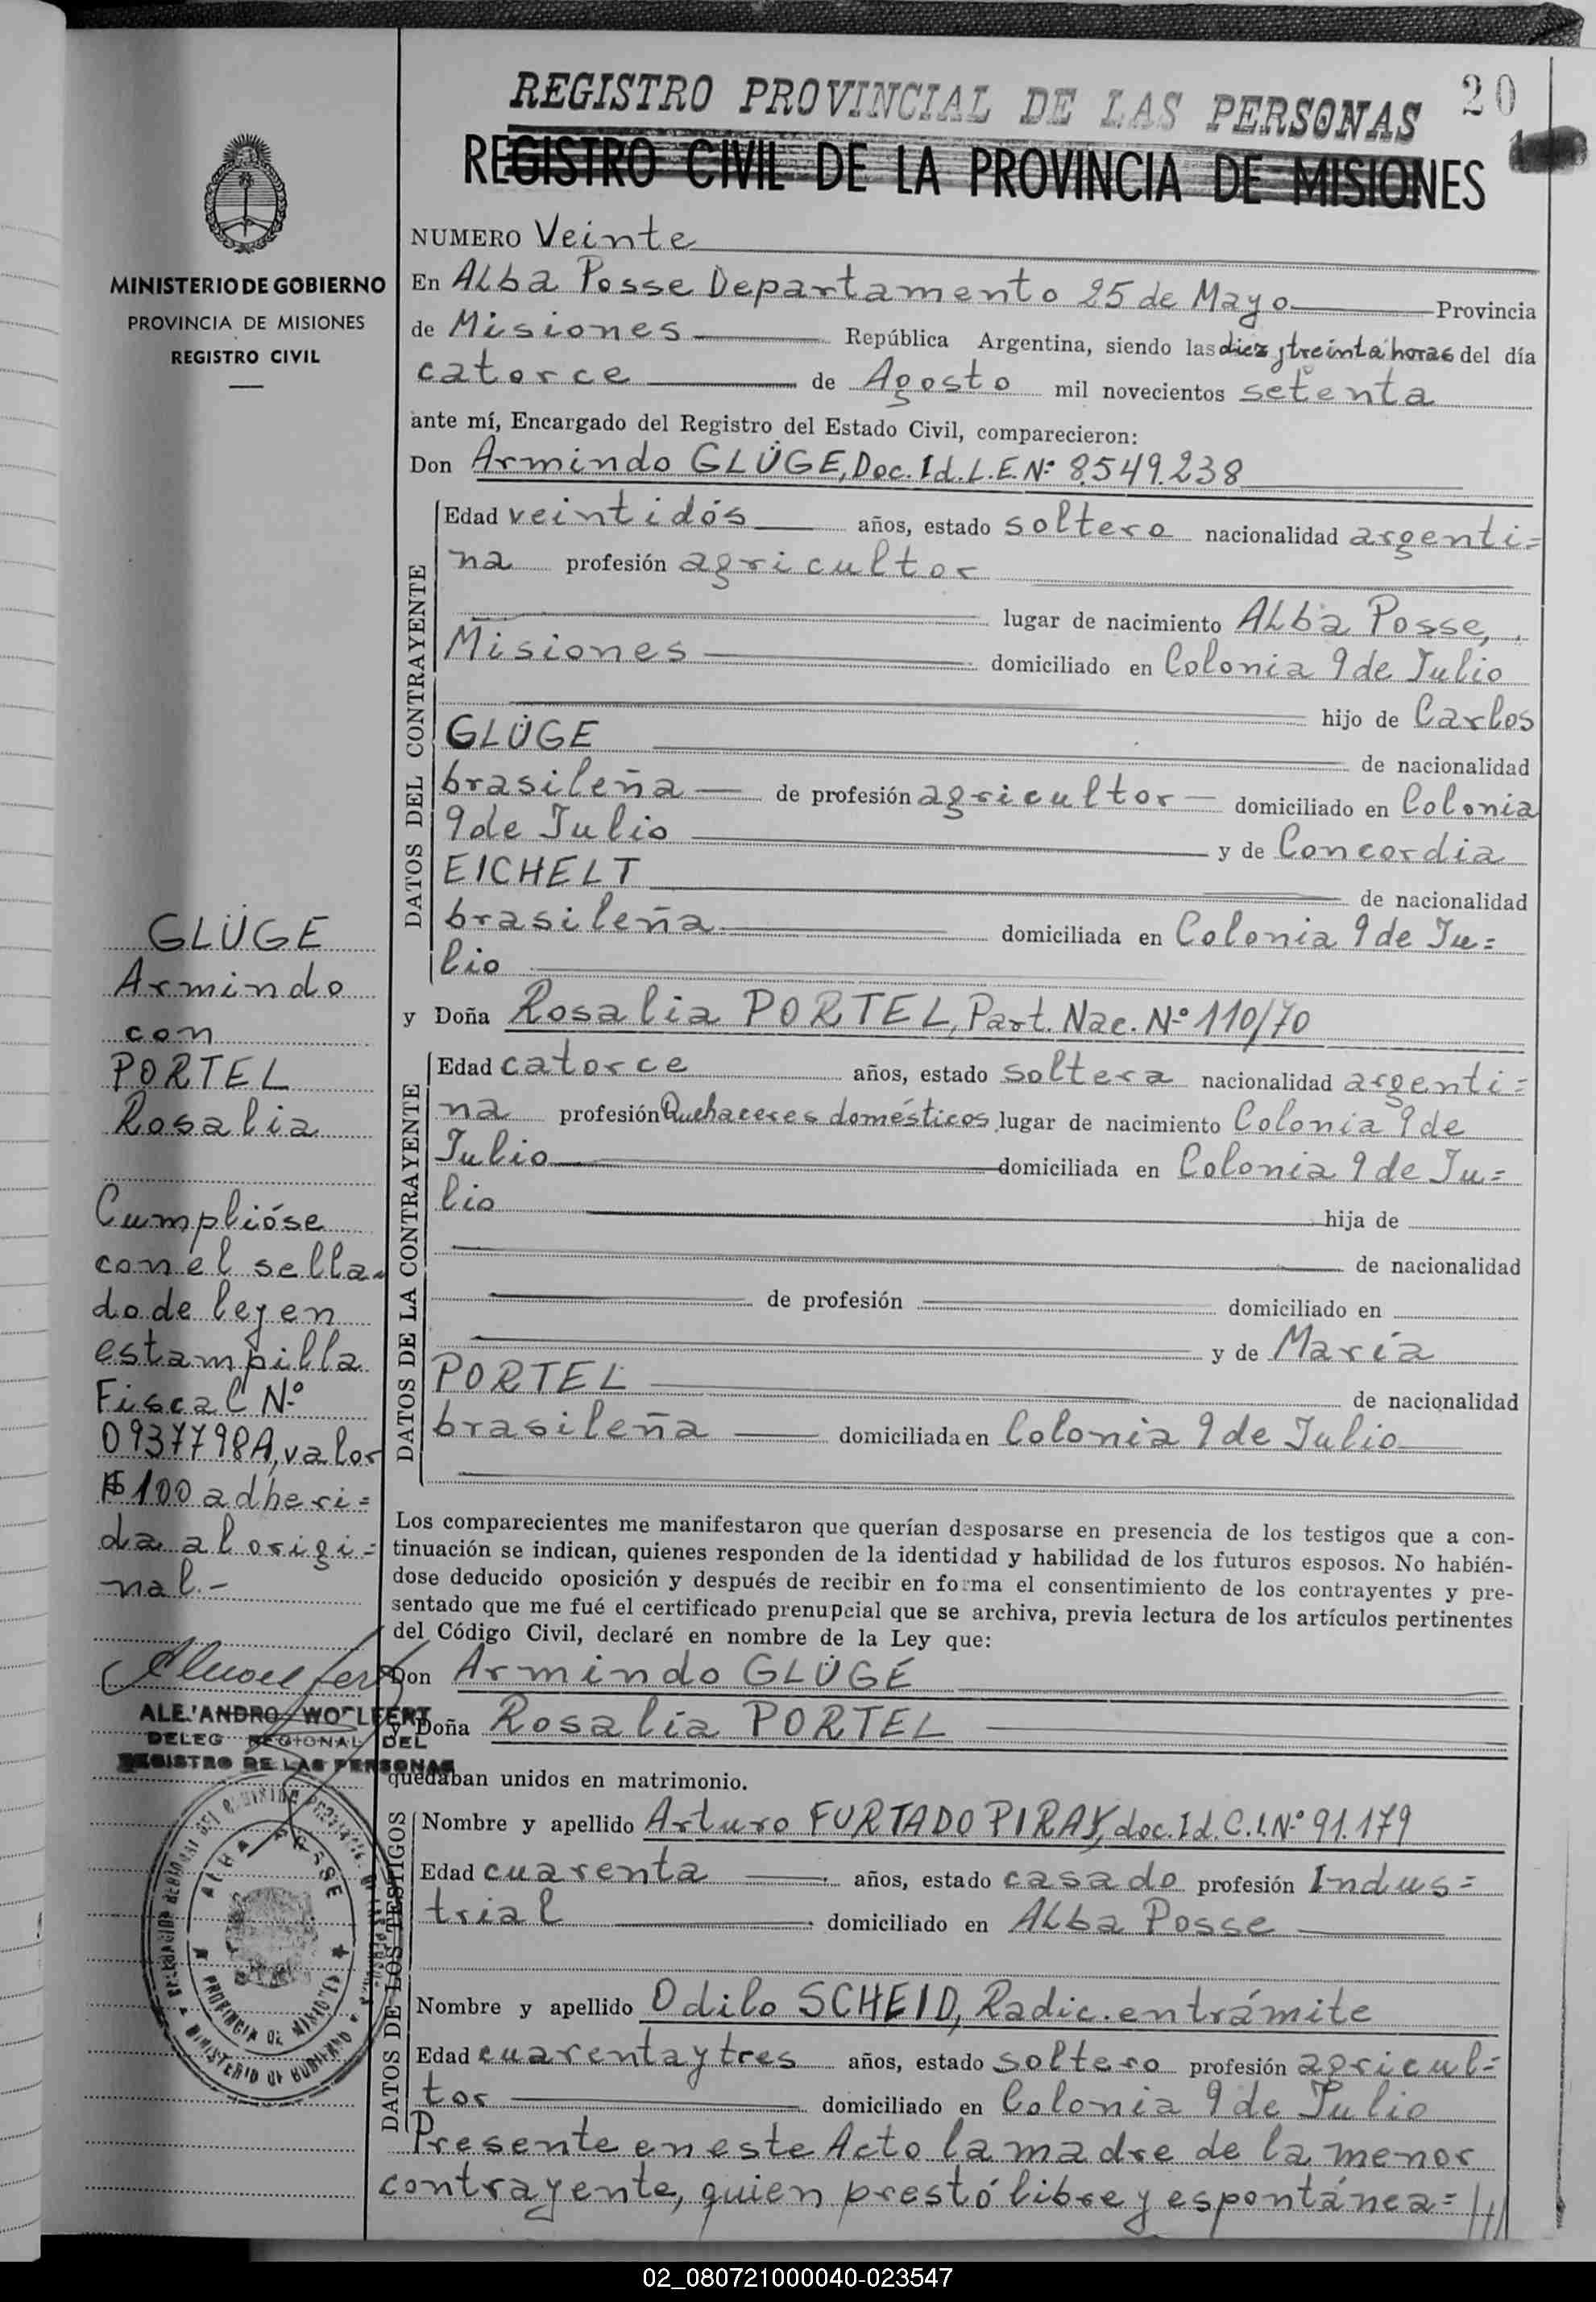 REGISTRO PROVINCIAL DE LAS PERSONAS
20
REGISTRO CIVIL DE LA PROVINCIA DE MISIONES
MINISTERIO DE GOBIERNO
PROVINCIA DE MISIONES
REGISTRO CIVIL
NUMERO Veinte
En Alba Posse Departamento 25 de Mayo Provincia
de Misiones República Argentina, siendo las diez y treinta horas del día
catorce de Agosto mil novecientos setenta
ante mí, Encargado del Registro del Estado Civil, comparecieron:
Don Armindo GLÜGE, Doc. Id. L.E. Nº 8.549.238
DATOS DEL CONTRAYENTE
Edad veintidós años, estado soltero nacionalidad argenti=
na profesión agricultor
lugar de nacimiento Alba Posse,
Misiones domiciliado en Colonia 9 de Julio
hijo de Carlos
GLÜGE
de nacionalidad
brasileña de profesión agricultor domiciliado en Colonia
9 de Julio y de Concordia
EICHELT
de nacionalidad
brasileña domiciliada en Colonia 9 de Ju=
lio
y Doña Rosalia PORTEL, Part. Nac. Nº 110/70
DATOS DE LA CONTRAYENTE
Edad catorce años, estado soltera nacionalidad argenti=
na profesión Quehaceres domésticos lugar de nacimiento Colonia 9 de
Julio domiciliada en Colonia 9 de Ju=
lio
hija de
de nacionalidad
de profesión domiciliado en
y de María
PORTEL
de nacionalidad
brasileña domiciliada en Colonia 9 de Julio
Los comparecientes me manifestaron que querían desposarse en presencia de los testigos que a con-
tinuación se indican, quienes responden de la identidad y habilidad de los futuros esposos. No habién-
dose deducido oposición y después de recibir en forma el consentimiento de los contrayentes y pre-
sentado que me fué el certificado prenupcial que se archiva, previa lectura de los artículos pertinentes
del Código Civil, declaré en nombre de la Ley que:
Don Armindo GLÜGE
y Doña Rosalia PORTEL
quedaban unidos en matrimonio.
DATOS DE LOS TESTIGOS
Nombre y apellido Arturo FURTADO PIRAY, doc. Id. C.I. Nº 91.179
Edad cuarenta años, estado casado profesión Indus=
trial domiciliado en Alba Posse
Nombre y apellido Odilo SCHEID, Radic. en trámite
Edad cuarenta y tres años, estado soltero profesión agricul=
tor domiciliado en Colonia 9 de Julio
Presente en este Acto la madre de la menor
contrayente, quien prestó libre y espontánea=
GLÜGE
Armindo
con
PORTEL
Rosalia
Cumplióse
con el sella
do de ley en
estampilla
Fiscal Nº
0937798A, valor
$ 100 adheri=
da al origi=
nal.-
ALEJANDRO WOLFERT
DELEG REGIONAL DEL
REGISTRO DE LAS PERSONAS
ALBA POSSE
PROVINCIA DE MISIONES
MINISTERIO DE GOBIERNO
02_080721000040-023547